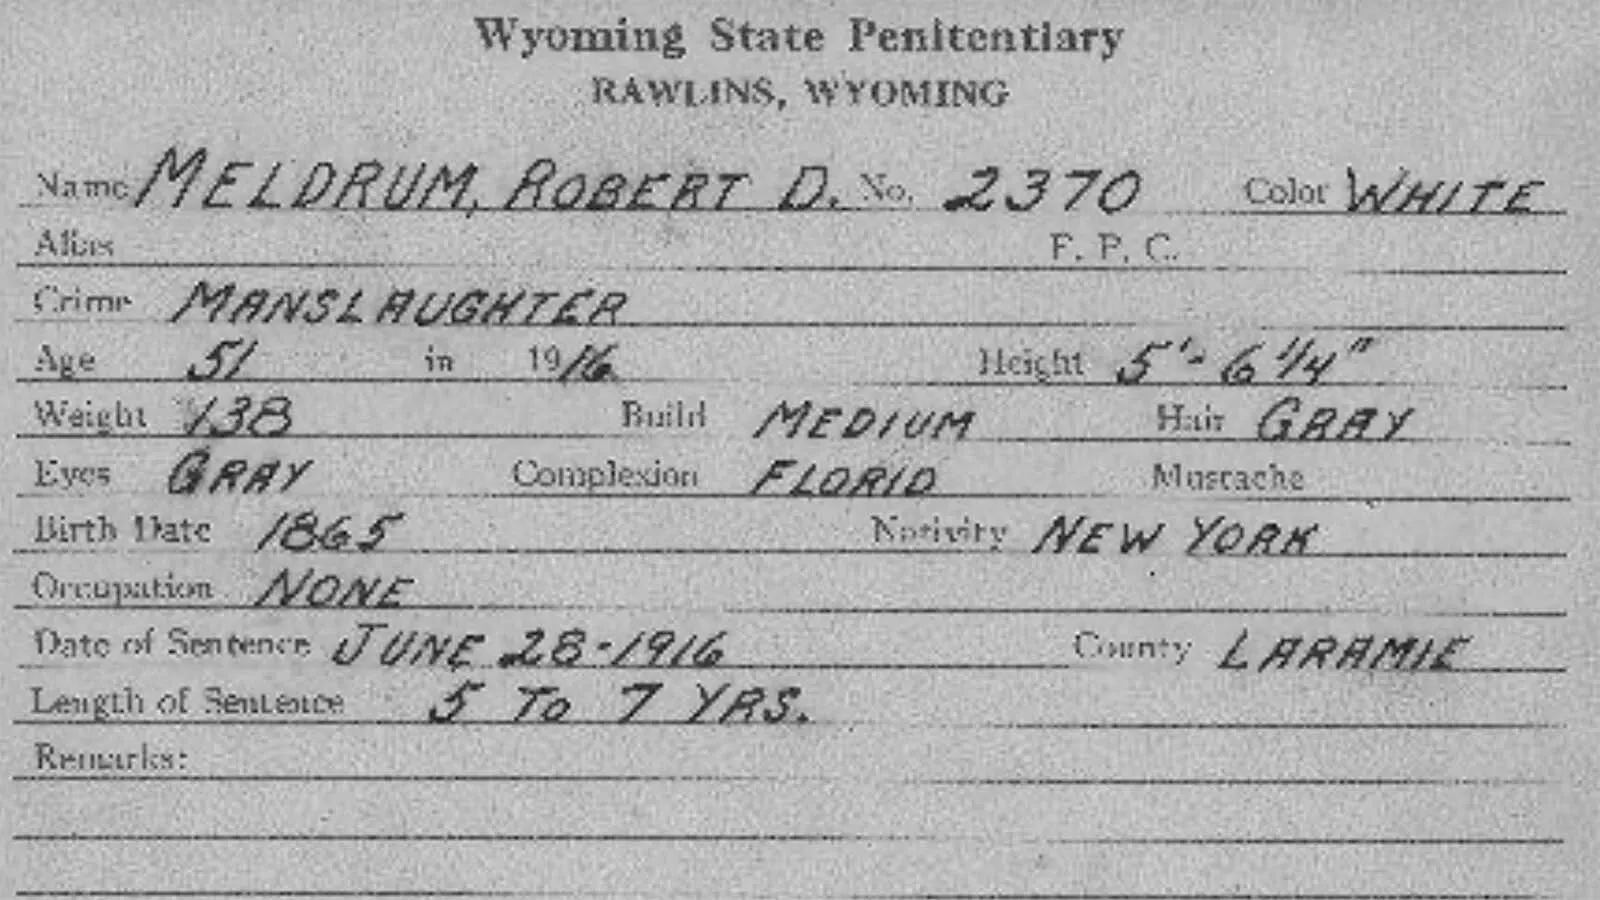 Wyoming State Penitentiary
RAWLINS, WYOMING
Name MELDRUM, ROBERT D. No. 2370 Color WHITE
Alias F. P. C.
Crime MANSLAUGHTER
Age 51 in 1916 Height 5'-6 1/4"
Weight 138 Build MEDIUM Hair GRAY
Eyes GRAY Complexion FLORID Mustache
Birth Date 1865 Nativity NEW YORK
Occupation NONE
Date of Sentence JUNE 28-1916 County LARAMIE
Length of Sentence 5 TO 7 YRS.
Remarks: